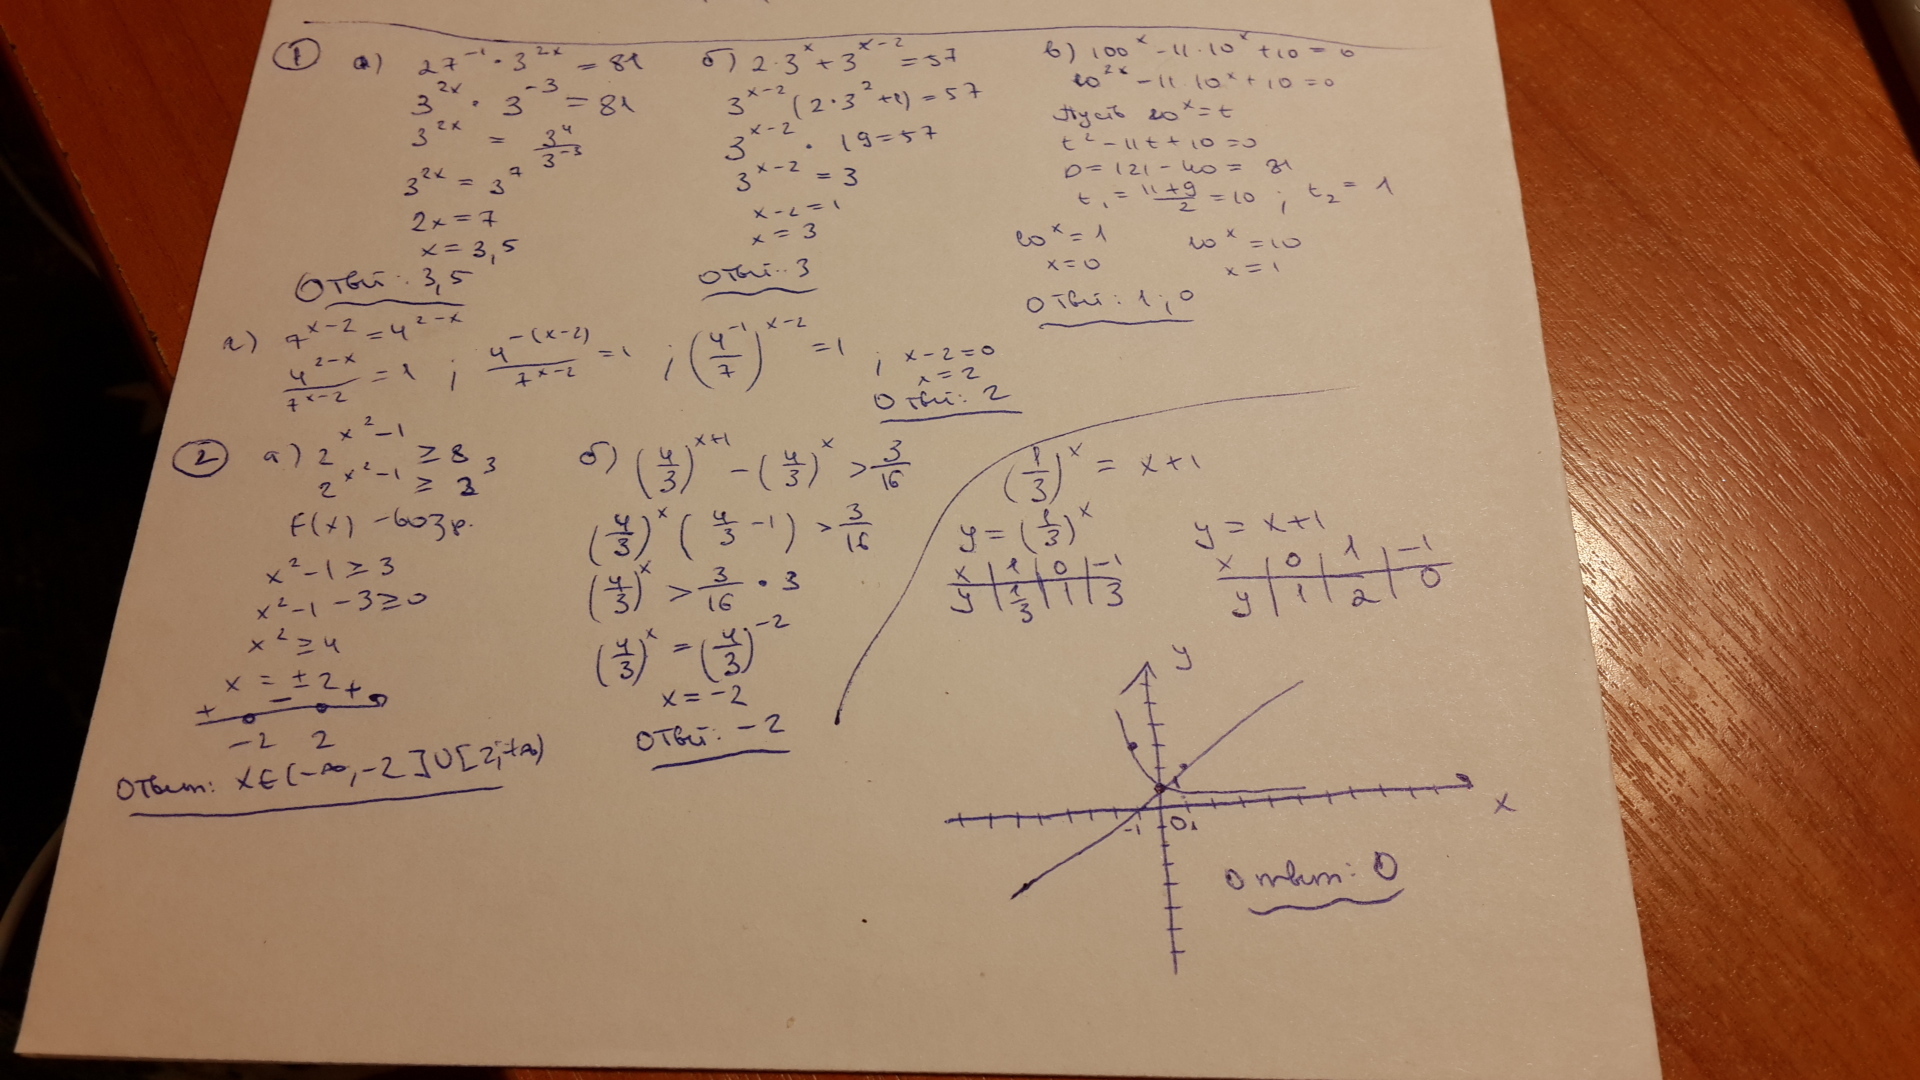 1 а) 27^{-1} · 3^{2x} = 81
3^{2x} · 3^{-3} = 81
3^{2x} = 3^4/3^{-3}
3^{2x} = 3^7
2x = 7
x = 3,5
Ответ: 3,5
б) 2·3^x + 3^{x-2} = 57
3^{x-2} (2·3^2 + 1) = 57
3^{x-2} · 19 = 57
3^{x-2} = 3
x-2 = 1
x = 3
Ответ: 3
в) 100^x - 11·10^x + 10 = 0
10^{2x} - 11·10^x + 10 = 0
Пусть 10^x = t
t^2 - 11t + 10 = 0
D = 121 - 40 = 81
t_1 = (11+9)/2 = 10 ; t_2 = 1
10^x = 1 10^x = 10
x = 0 x = 1
Ответ: 1; 0
г) 7^{x-2} = 4^{2-x}
4^{2-x}/7^{x-2} = 1 ; 4^{-(x-2)}/7^{x-2} = 1 ; (4^{-1}/7)^{x-2} = 1 ; x-2 = 0
x = 2
Ответ: 2
2 а) 2^{x^2-1} ≥ 8
2^{x^2-1} ≥ 2^3
F(x) - возр.
x^2 - 1 ≥ 3
x^2 - 1 - 3 ≥ 0
x^2 ≥ 4
x = ±2
+ - +
-2 2
Ответ: x∈(-∞, -2]∪[2; +∞)
б) (4/3)^{x+1} - (4/3)^x > 3/16
(4/3)^x (4/3 - 1) > 3/16
(4/3)^x > 3/16 · 3
(4/3)^x = (4/3)^{-2}
x = -2
Ответ: -2
(1/3)^x = x+1
y = (1/3)^x
x | 1 | 0 | -1
y | 1/3 | 1 | 3
y = x+1
x | 0 | 1 | -1
y | 1 | 2 | 0
y
x
-1 0 1
Ответ: 0